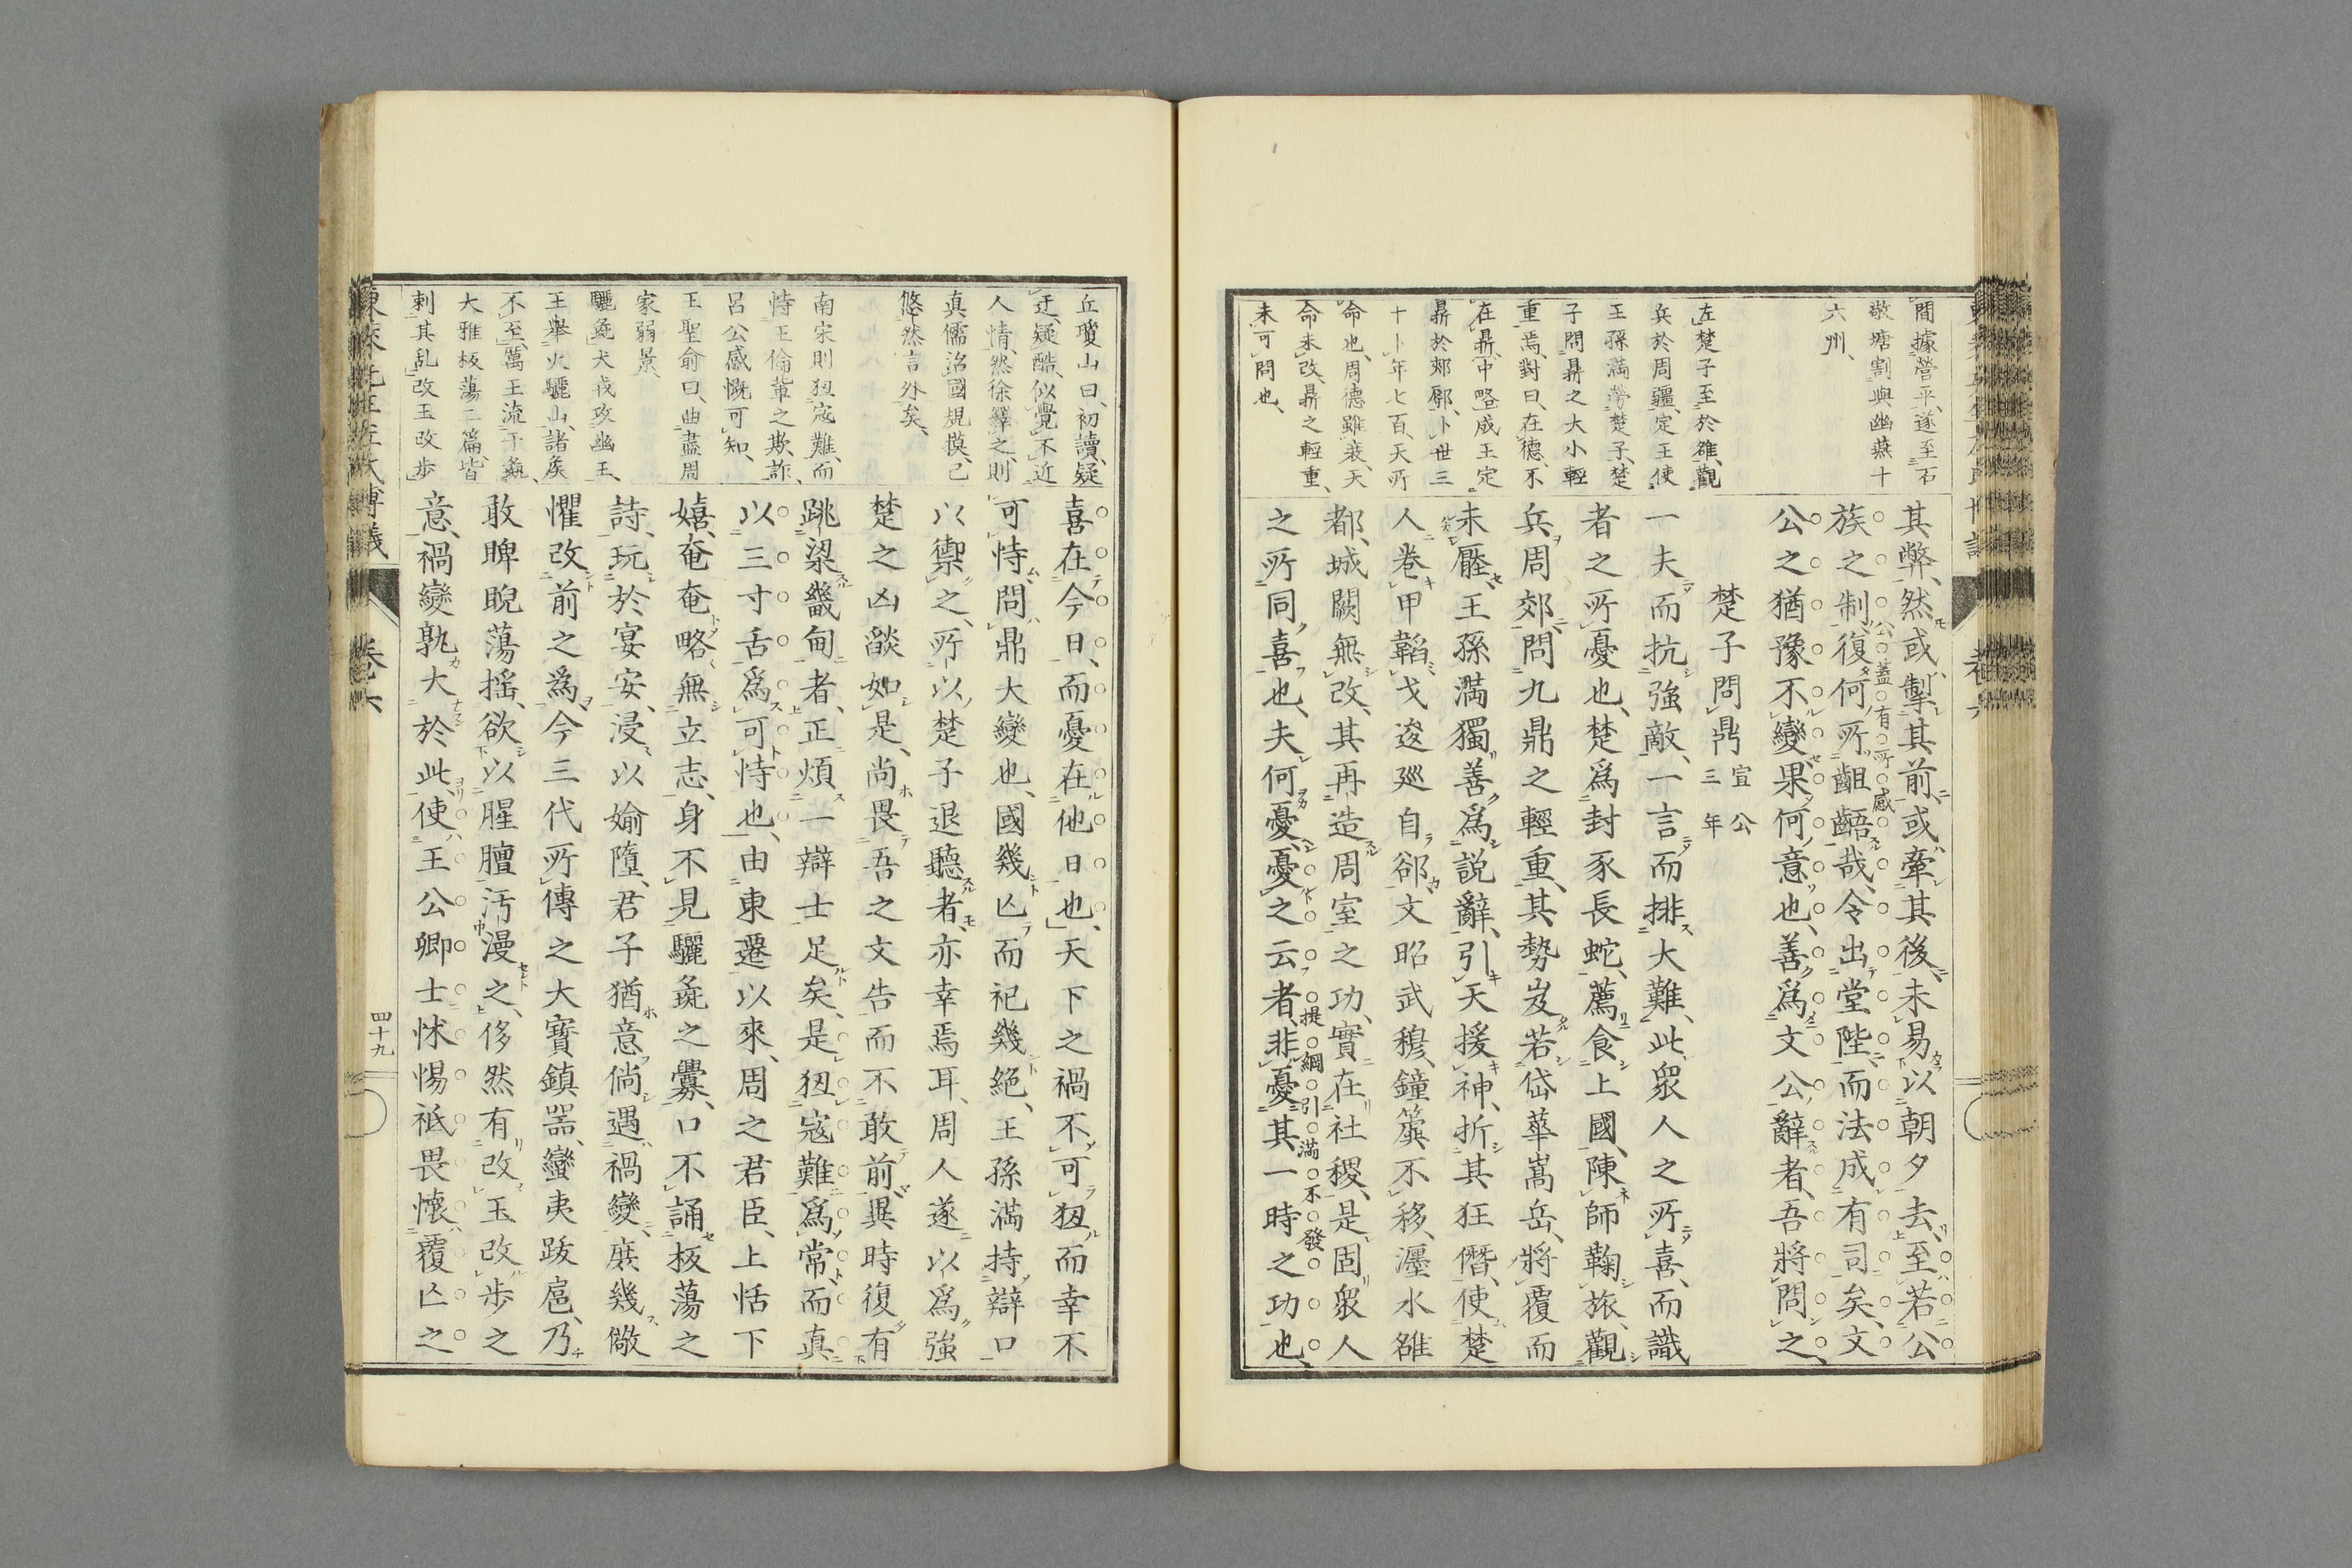 間據營平、遂至石
敬塘割與幽燕十
六州、
左楚子至於雒、觀
兵於周疆、定王使
王孫滿勞楚子、楚
子問鼎之大小輕
重焉、對曰、在德、不
在鼎、中略成王定
鼎於郟鄏、卜世三
十卜年七百、天所
命也、周德雖衰、天
命未改、鼎之輕重、
未可問也、
其弊、然或掣其前、或牽其後、未易以朝夕去、至若公
族之制、復何所齟齬哉、令出堂陛、而法成有司矣、文
公之猶豫不變、果何意也、善爲文公辭者、吾將問之、
公蓋有所感
楚子問鼎 宣公三年
一夫而抗強敵、一言而排大難、此衆人之所喜、而識
者之所憂也、楚爲封豕長蛇、薦食上國、陳師鞠旅、觀
兵周郊、問九鼎之輕重、其勢岌若岱華嵩岳、將覆而
未厭、王孫滿獨善爲説辭、引天援神、折其狂僭、使楚
人卷甲韜戈逡巡自郤、文昭武穆、鐘簴不移、瀍水雒
都、城闕無改、其再造周室之功、實在社稷、是固衆人
之所同喜也、夫何憂、憂之云者、非憂其一時之功也、
提綱引滿不發
丘瓊山曰、初讀、疑
迂、疑酷、似覺不近
人情、然徐繹之、則
真儒治國規摸、已
悠然言外矣、
南宋則狃寇難、而
恃王倫輩之欺詐、
呂公感慨可知、
王聖俞曰、曲盡周
家弱景、
驪兔犬戎攻幽王、
王舉火驪山、諸矦
不至、萬王流于彘、
大雅板蕩二篇、皆
刺其乱、改玉改歩
喜在今日、而憂在他日也、天下之禍不可狃而幸不
可恃、問鼎大變也、國幾亾而祀幾絕、王孫滿持辯口
以禦之、所以楚子退聽者、亦幸焉耳、周人遂以爲強
楚之凶燄如是、尚畏吾之文告而不敢前、異時復有
跳梁畿甸者、正煩一辯士足矣、是狃寇難爲常、而真
以三寸舌爲可恃也、由東遷以來、周之君臣、上恬下
嬉、奄奄略無立志、身不見驪彘之釁、口不誦板蕩之
詩、玩於宴安、浸以婾墮、君子猶意倘遇禍變、庶幾儆
懼改前之爲、今三代所傳之大寶鎮噐、蠻夷跋扈、乃
敢睥睨蕩揺、欲以腥膻汚漫之、侈然有改玉改歩之
意、禍變孰大於此、使王公卿士怵惕祗畏懷覆亾之
卷六
四十九